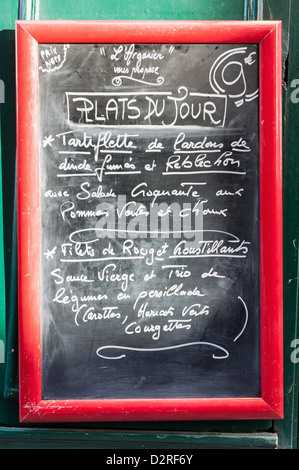 PRIX NETS
"L'Arganier"
vous propose
9€
PLATS DU JOUR
* Tartiflette de lardons de
dinde fumés et Reblochon
avec Salade Croquante aux
Pommes Vertes et choux
* Filets de Rouget Croustillants
Sauce Vierge et Trio de
légumes en persillade
(Carottes, Haricots Verts
Courgettes)
alamy
Image ID: D2RF6Y
www.alamy.com